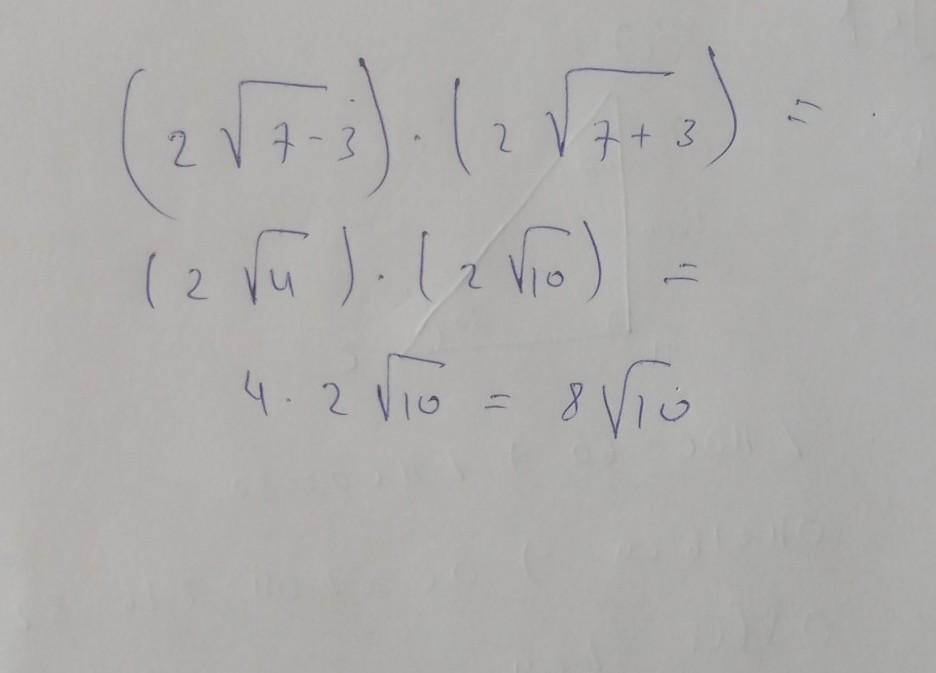 (2√(7-3)) · (2√(7+3)) =
(2√4) · (2√10) =
4 · 2√10 = 8√10